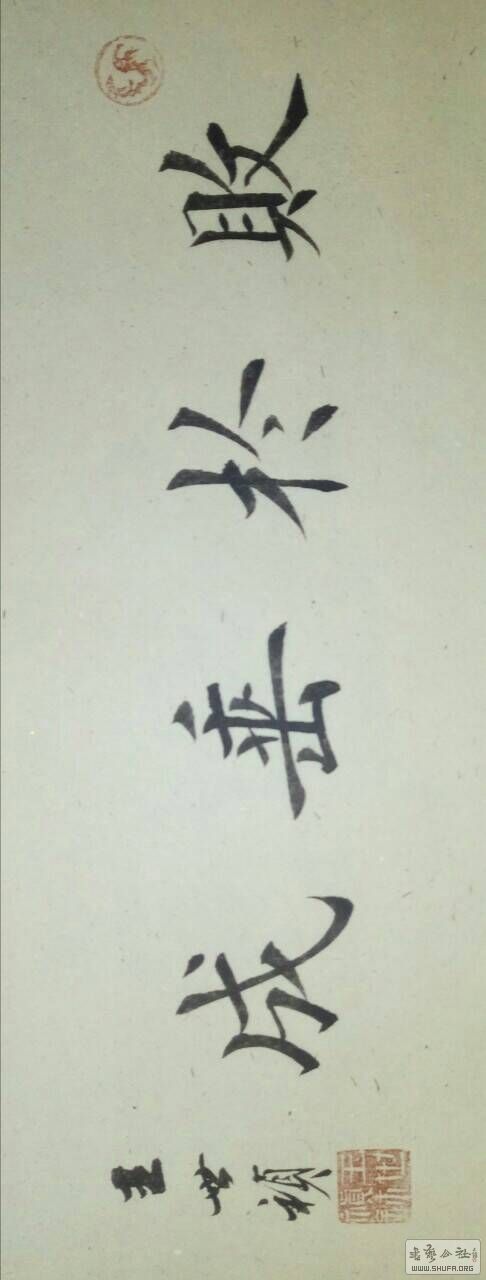 敗於垂成
王世禎
書藝公社
WWW.SHUFA.ORG